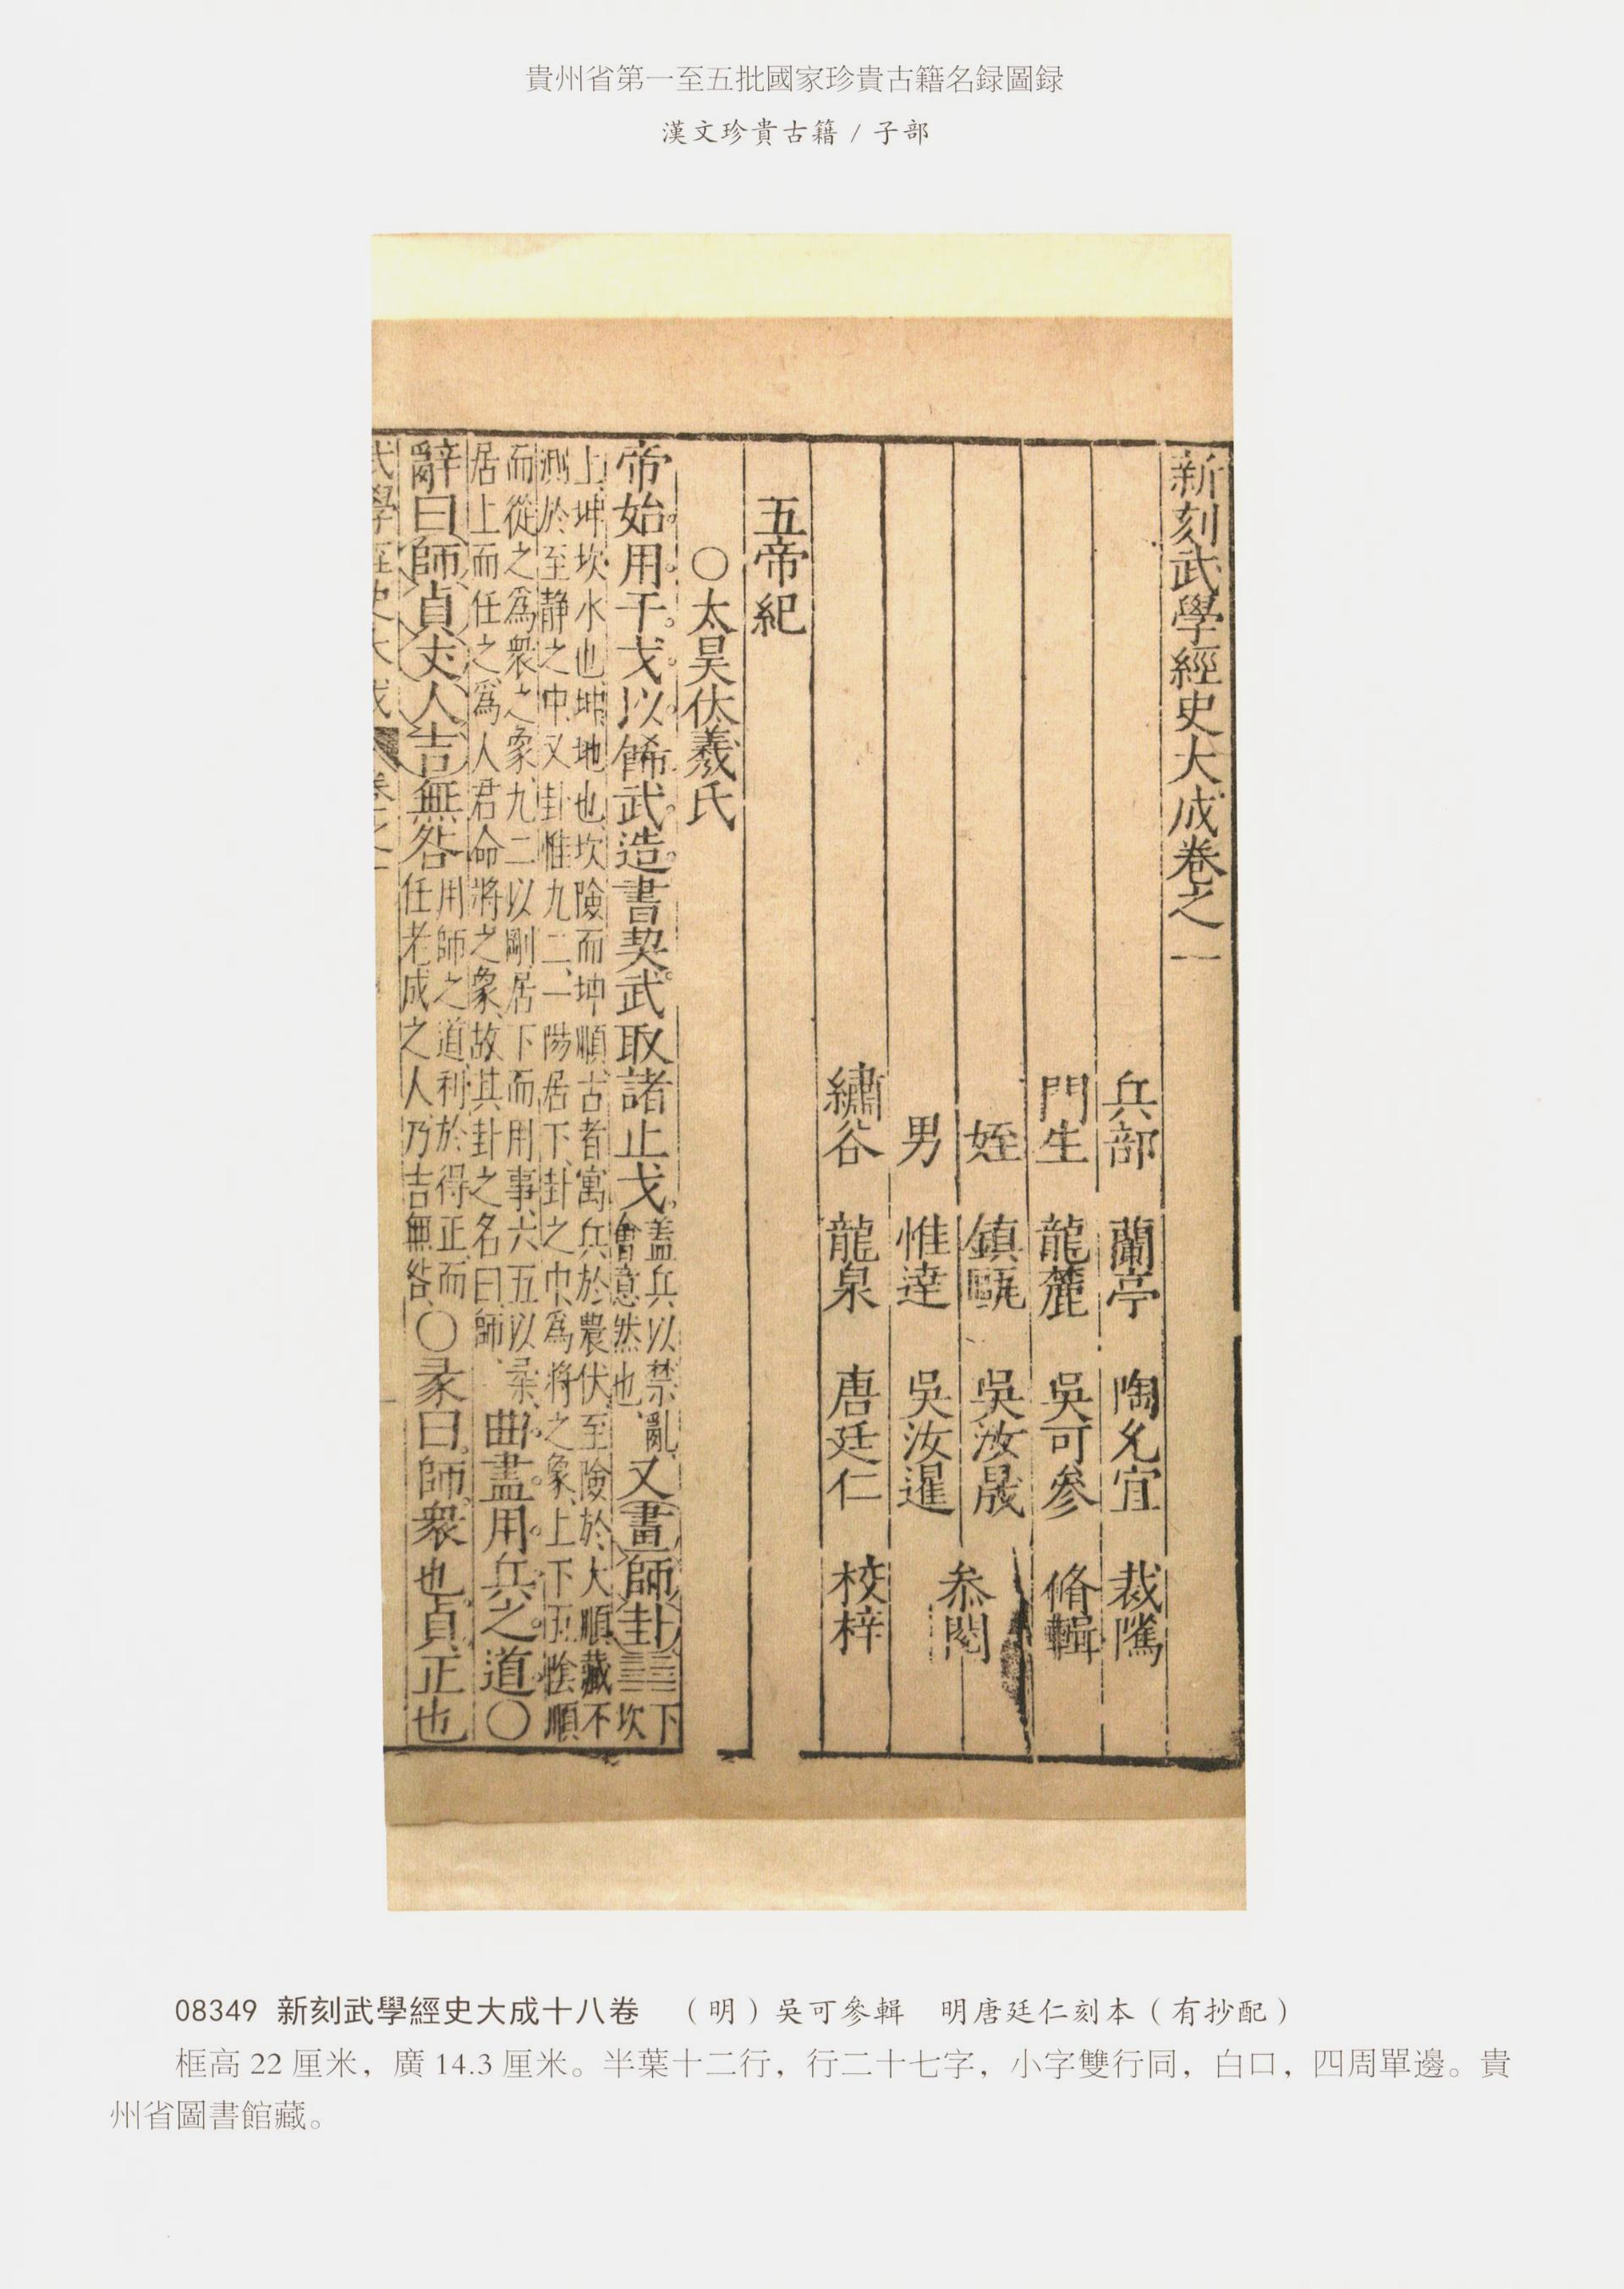 貴州省第一至五批國家珍貴古籍名録圖録
漢文珍貴古籍 / 子部
新刻武學經史大成卷之一
兵部 蘭亭 陶允宜 裁隲
門生 龍麓 吳可參 脩輯
姪 鎮 吳汝晟
男 惟達 吳汝暹 叅閱
繡谷 龍泉 唐廷仁 校梓
五帝紀
○太昊伏羲氏
帝始用干戈以餙武造書契武取諸止戈
蓋兵以禁亂
會意然也
又畫師卦䷆
下坎
上坤坎水也坤地也坎險而坤順古者寓兵於農伏至險於大順藏不
測於至靜之中又卦惟九二一陽居下卦之中為將之象上下五陰順
而從之為衆之象九二以剛居下而用事六五以柔
居上而任之為人君命將之象故其卦之名曰師
曲盡用兵之道○
辭曰師貞丈人吉無咎
用師之道利於得正而
任老成之人乃吉無咎
○彖曰師衆也貞正也
武學經史大成 卷之一
08349 新刻武學經史大成十八卷 （明）吳可參輯 明唐廷仁刻本（有抄配）
框高 22 厘米，廣 14.3 厘米。半葉十二行，行二十七字，小字雙行同，白口，四周單邊。貴
州省圖書館藏。